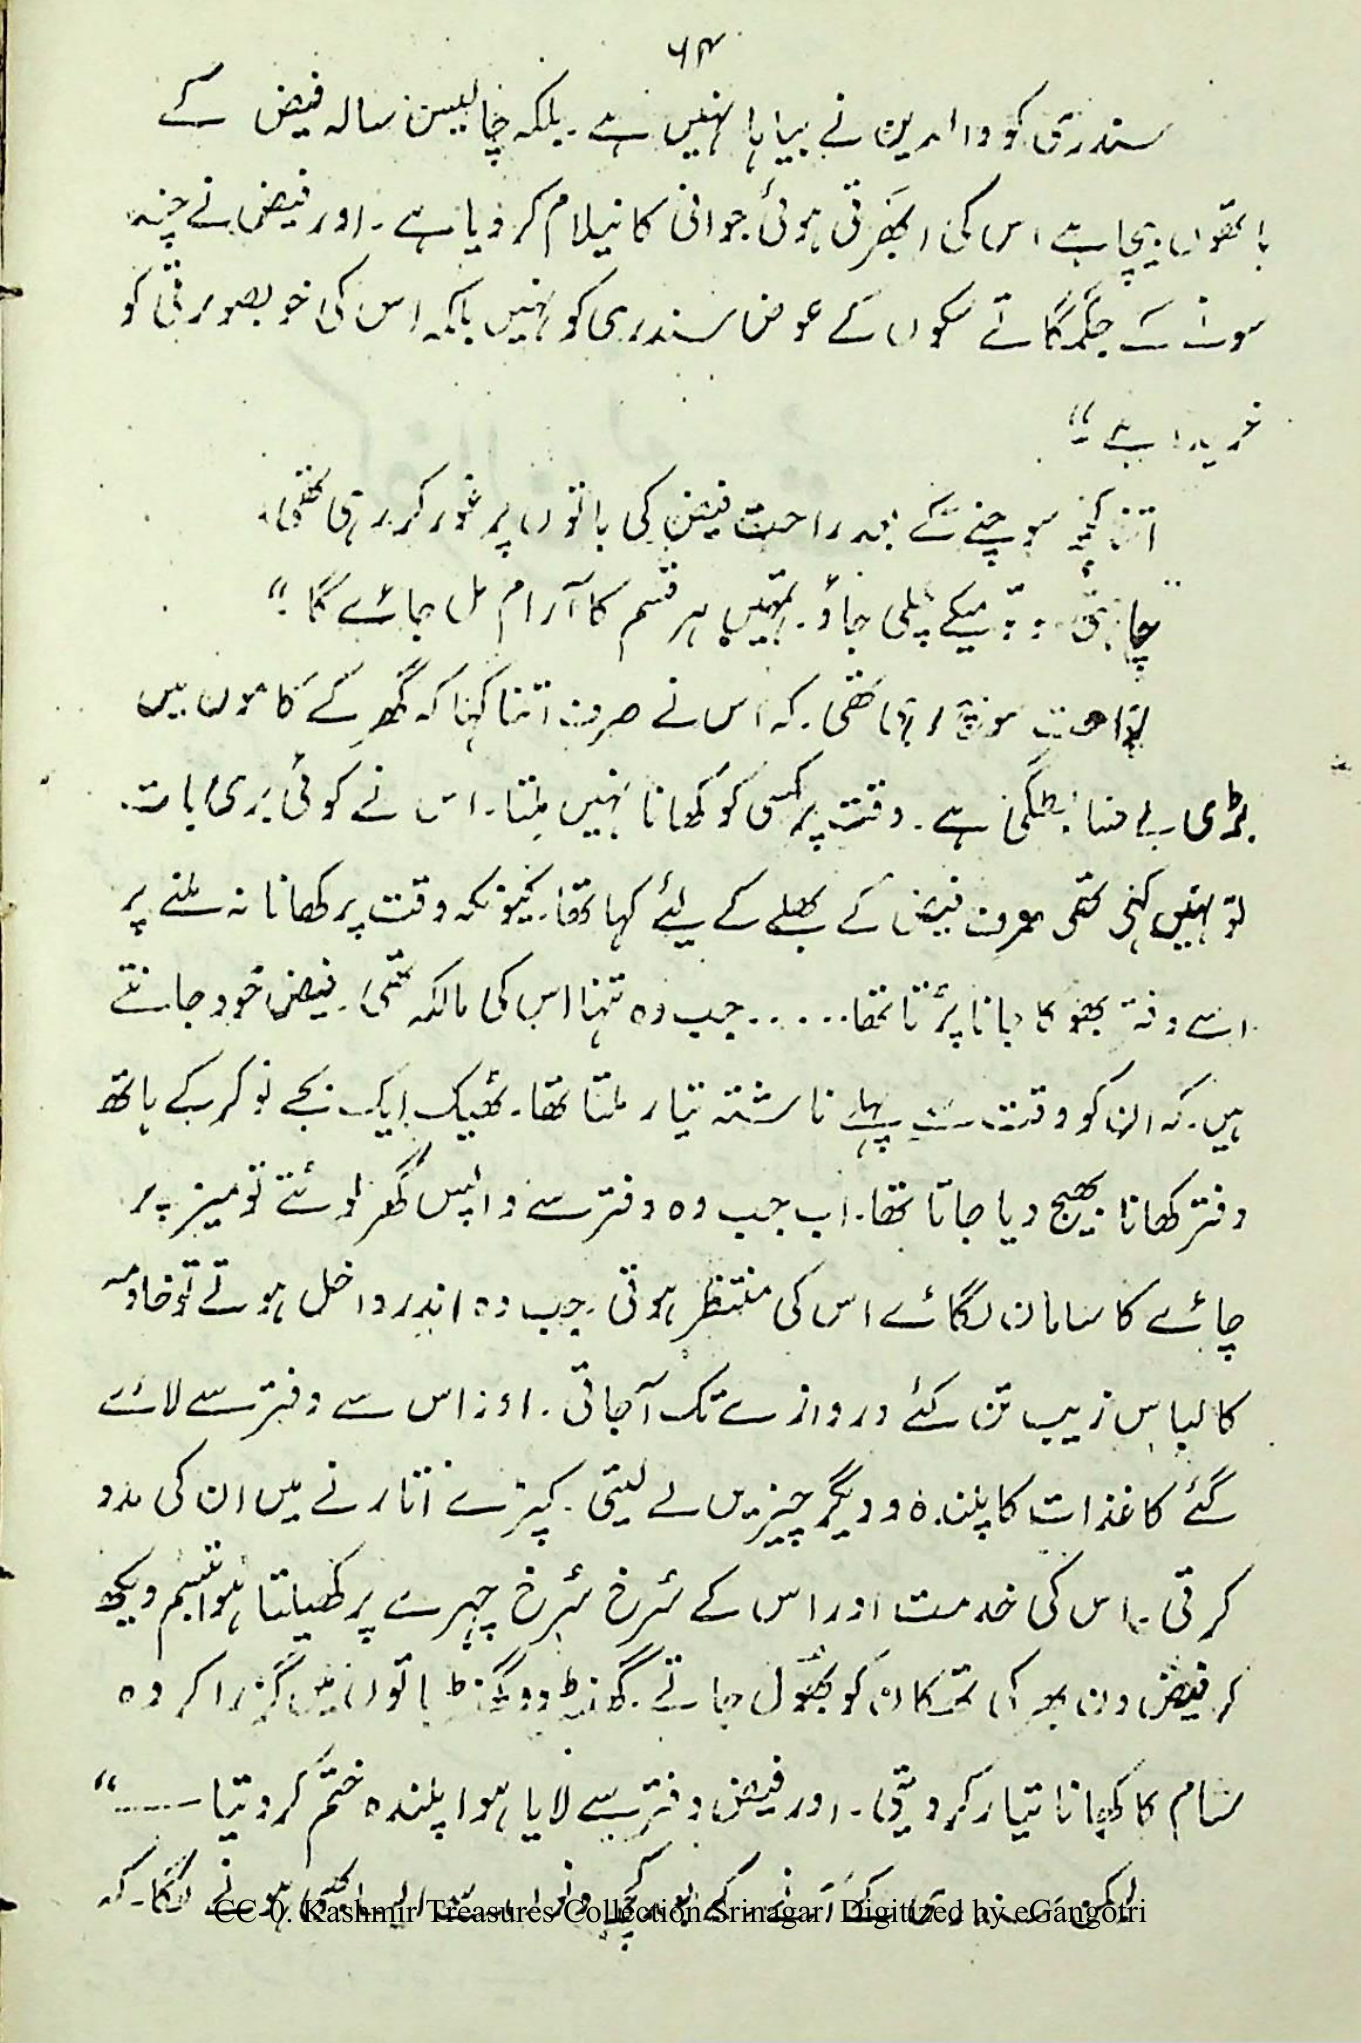 ۶۴
سندری کو والدین نے بیاہا نہیں ہے۔ بلکہ چالیس سالہ فیض کے
ہاتھوں بیچا ہے اس کی ابھرتی ہوئی جوانی کا نیلام کر دیا ہے۔ اور فیض نے چند
سونے کے جگمگاتے سکوں کے عوض سندری کو نہیں بلکہ اس کی خوبصورتی کو
خریدا ہے۔"
اتنا کچھ سوچنے کے بعد راحت فیض کی باتوں پر غور کر رہی تھی۔
میکے چلی جاؤ۔ تمہیں ہر قسم کا آرام مل جائے گا۔"
راحت سوچ رہی تھی۔ کہ اس نے صرف اتنا کہا کہ گھر کے کاموں میں
بڑی بے ضابطگی ہے۔ وقت پر کسی کو کھانا نہیں ملتا۔ اس نے کوئی بری بات
تو نہیں کہی تھی صرف فیض کے بھلے کے لئے کہا تھا۔ کیونکہ وقت پر کھانا نہ ملنے پر
اسے دفتر بھوکا جانا پڑتا تھا...... جب وہ تنہا اس کی مالکہ تھی۔ فیض خود جانتے
ہیں۔ کہ ان کو وقت سے پہلے ناشتہ تیار ملتا تھا۔ ٹھیک ایک بجے نوکر کے ہاتھ
دفتر کھانا بھیج دیا جاتا تھا۔ اب جب وہ دفتر سے واپس گھر لوٹتے تو میز پر
چائے کا سامان لگائے اس کی منتظر ہوتی۔ جب وہ اندر داخل ہوتے تو خادمہ
کا لباس زیب تن کئے دروازے تک آجاتی۔ اور اس سے دفتر سے لائے
گئے کاغذات کا پلندہ و دیگر چیزیں لے لیتی۔ کپڑے اتارنے میں ان کی مدد
کرتی۔ اس کی خدمت اور اس کے سُرخ سُرخ چہرے پر کھیلتا ہوا تبسم دیکھ
کر فیض دن بھر کی تھکان کو بھول جاتے۔ گھنٹہ دو گھنٹہ باتوں میں گزرا کر وہ
شام کا کھانا تیار کر دیتی۔ اور فیض دفتر سے لایا ہوا پلندہ ختم کر دیتا ۔۔۔۔۔"
لیکن سندری کے آنے کے بعد کچھ دنوں سے ہونے لگا۔ کہ
CC-0. Kashmir Treasures Collection Srinagar. Digitized by eGangotri